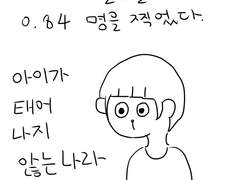 0.84 명을 찍었다.
아이가
태어
나지
않는 나라